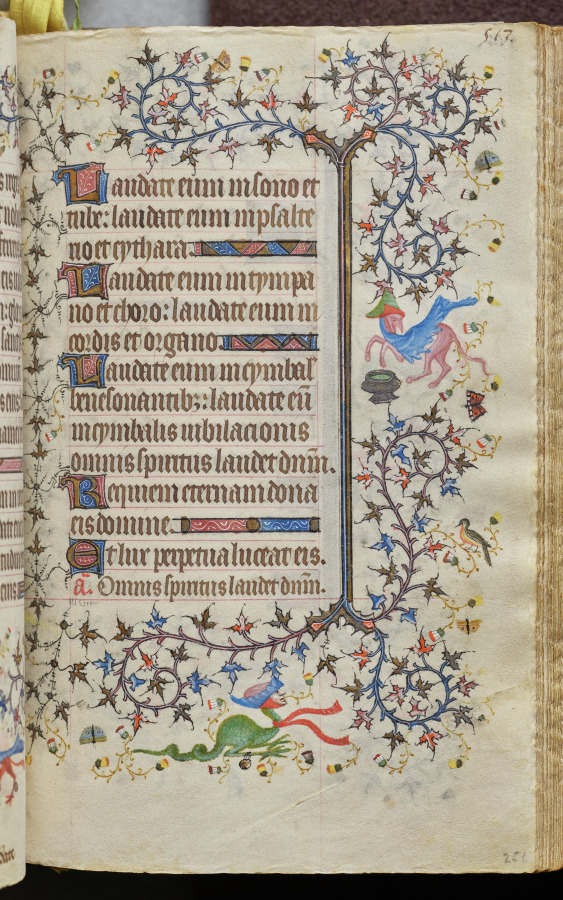 517.
Laudate eum in sono et
tube: laudate eum in psalte
rio et cythara.
Laudate eum in tympa
no et choro: laudate eum in
cordis et organo.
Laudate eum in cymbal
benesonantibz: laudate eū
in cymbalis iubilacionis
omnis spiritus laudet dnm̄.
Requiem eternam dona
eis domine.
Et lux perpetua luceat eis.
a. Omnis spiritus laudet dnm̄.